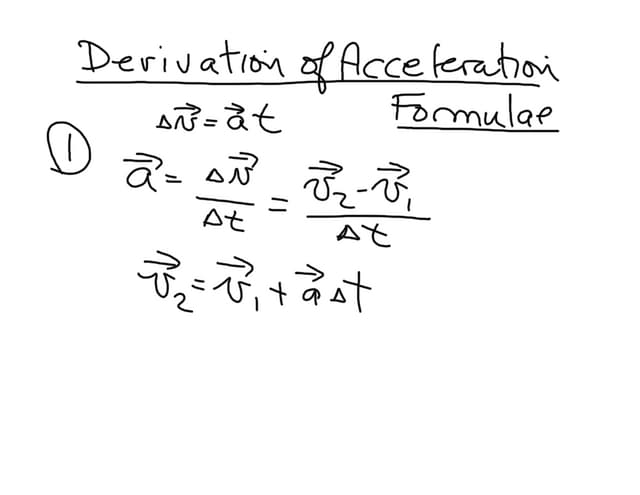 Derivation of Acceleration
Formulae
Δv⃗ = a⃗ t
① a⃗ = Δv⃗ / Δt = (v⃗₂ - v⃗₁) / Δt
v⃗₂ = v⃗₁ + a⃗ Δt